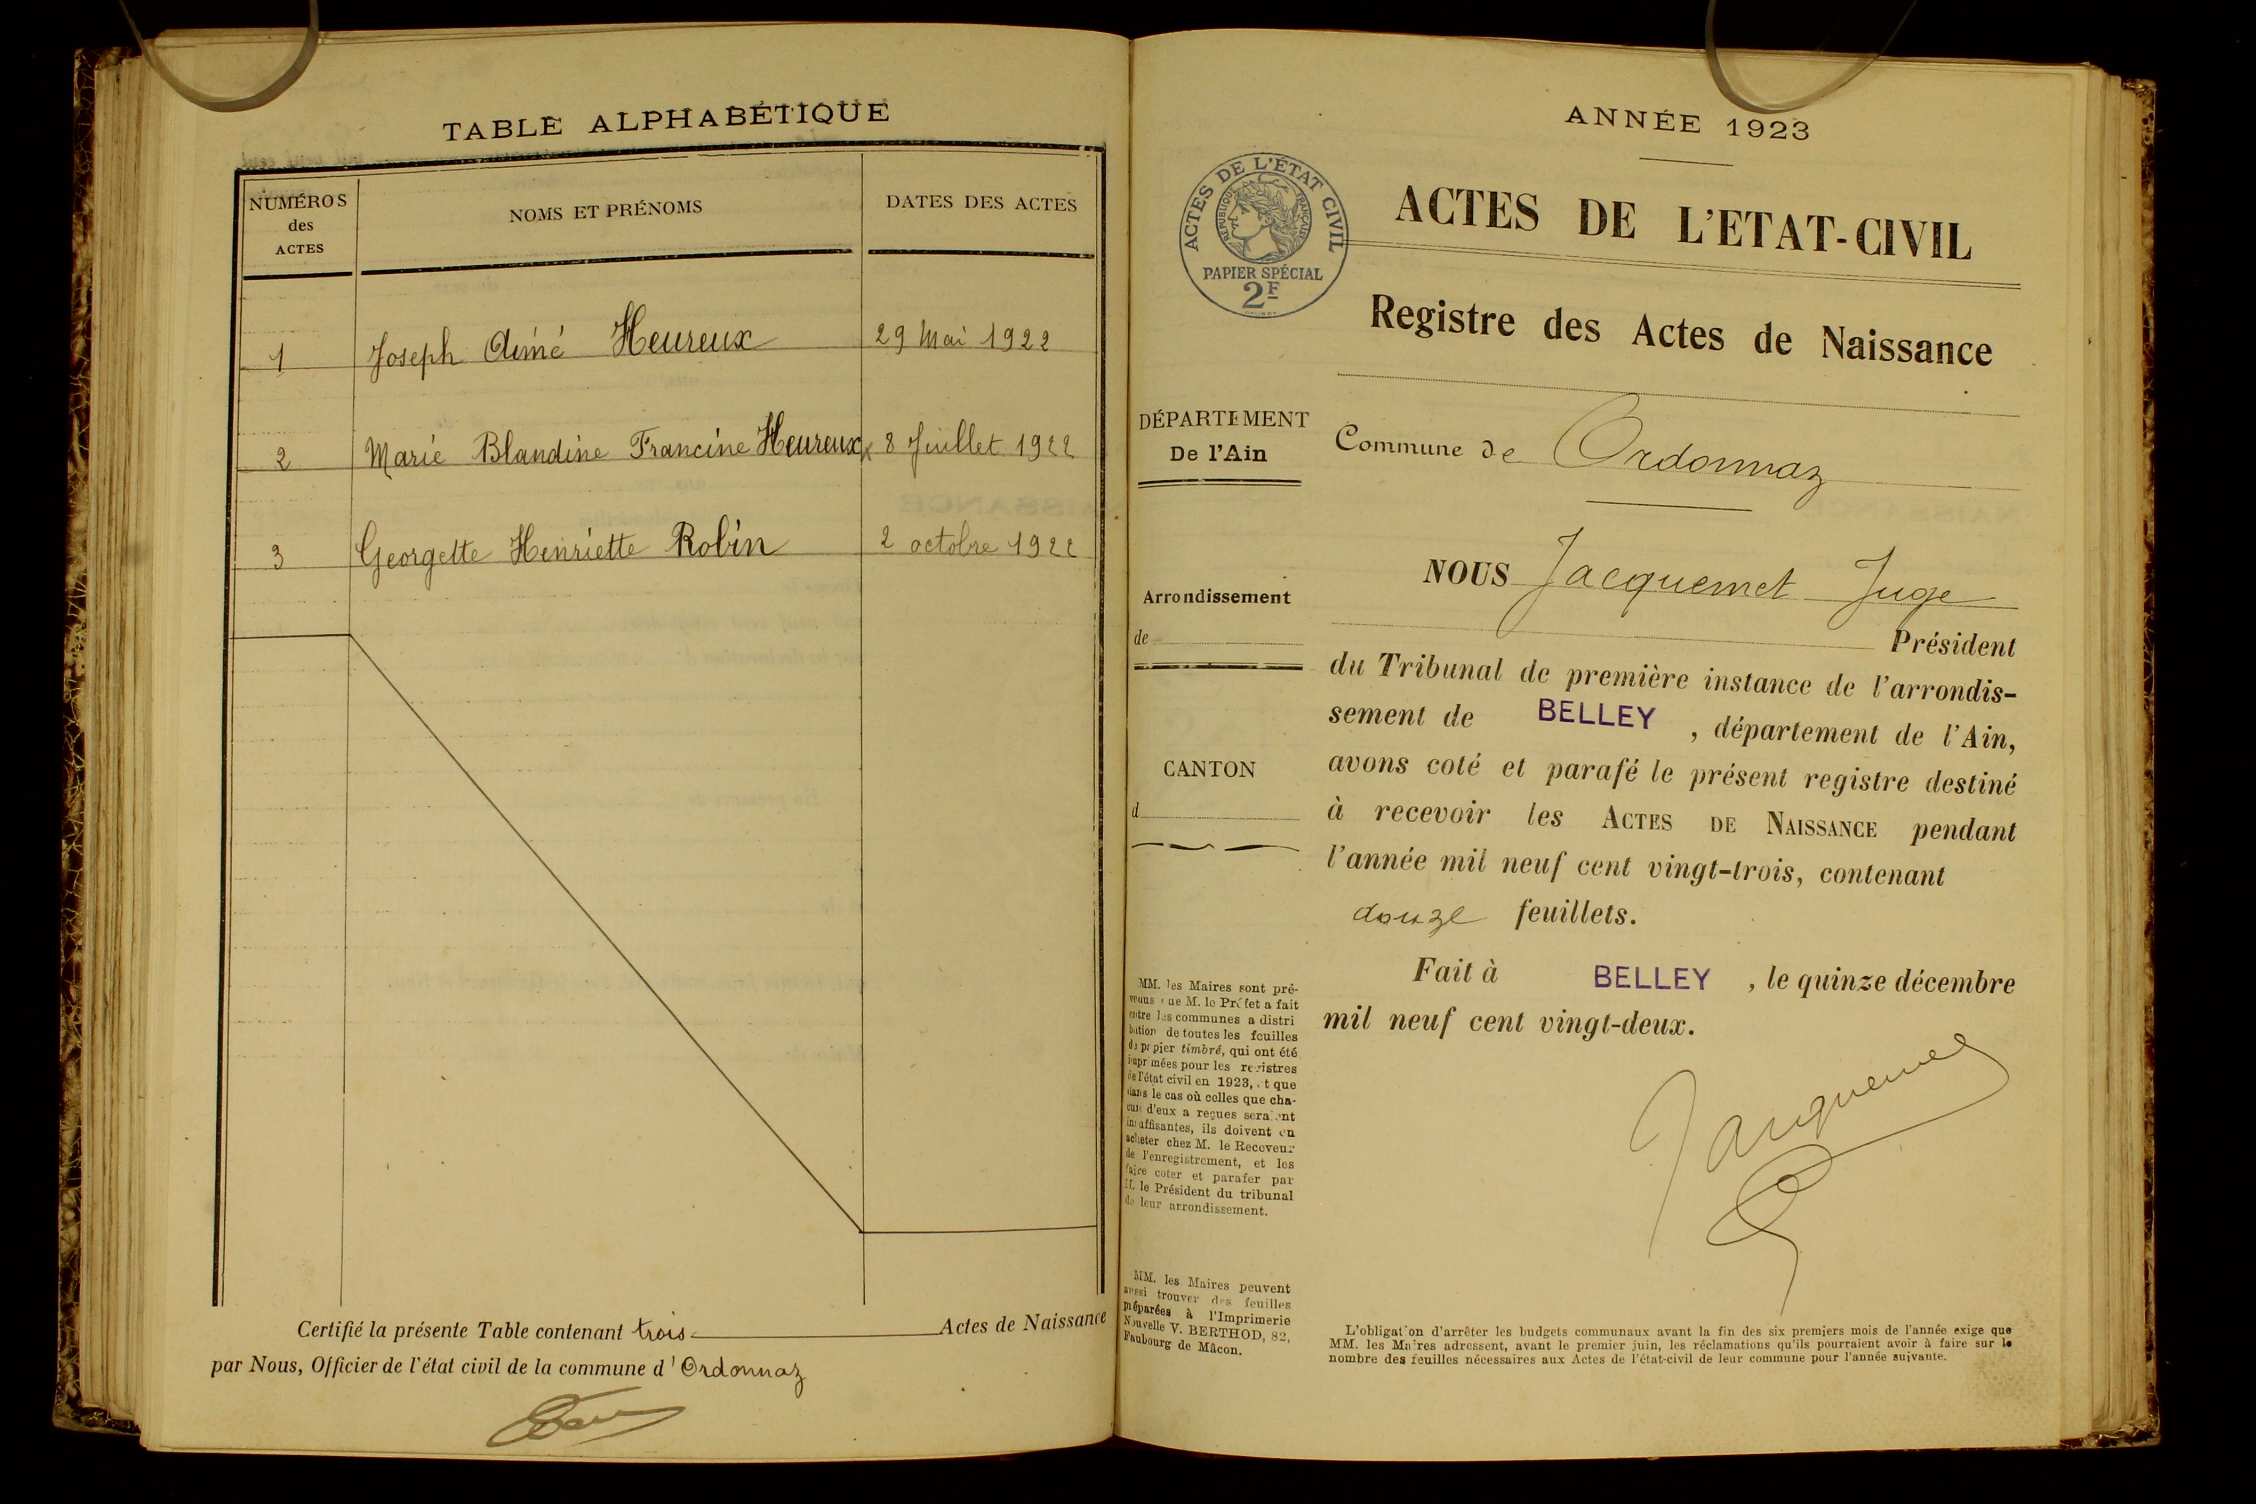 TABLE ALPHABÉTIQUE
NUMÉROS
des
ACTES
NOMS ET PRÉNOMS
DATES DES ACTES
1 Joseph Aimé Heureux 29 Mai 1922
2 Marie Blandine Francine Heureux 8 Juillet 1922
3 Georgette Henriette Robin 2 octobre 1922
Certifié la présente Table contenant trois Actes de Naissance
par Nous, Officier de l'état civil de la commune d'Ordonnaz
ANNÉE 1923
ACTES DE L'ÉTAT CIVIL
RÉPUBLIQUE FRANÇAISE
PAPIER SPÉCIAL
2F
ACTES DE L'ETAT-CIVIL
Registre des Actes de Naissance
DÉPARTEMENT
De l'Ain
Commune de Ordonnaz
Arrondissement
de
CANTON
d
NOUS Jacquemet Juge
Président
du Tribunal de première instance de l'arrondis-
sement de BELLEY, département de l'Ain,
avons coté et parafé le présent registre destiné
à recevoir les ACTES DE NAISSANCE pendant
l'année mil neuf cent vingt-trois, contenant
douze feuillets.
Fait à BELLEY, le quinze décembre
mil neuf cent vingt-deux.
Jacquemet
MM. les Maires sont pré-
venus que M. le Préfet a fait
entre les communes a distri
bution de toutes les feuilles
du papier timbré, qui ont été
imprimées pour les registres
de l'état civil en 1923, et que
dans le cas où celles que cha-
cun d'eux a reçues seraient
insuffisantes, ils doivent en
acheter chez M. le Receveur
de l'enregistrement, et les
faire coter et parafer par
M. le Président du tribunal
de leur arrondissement.
MM. les Maires peuvent
aussi trouver des feuilles
préparées à l'Imprimerie
Nouvelle V. BERTHOD, 82,
Faubourg de Mâcon.
L'obligation d'arrêter les budgets communaux avant la fin des six premiers mois de l'année exige que
MM. les Maires adressent, avant le premier juin, les réclamations qu'ils pourraient avoir à faire sur le
nombre des feuilles nécessaires aux Actes de l'état-civil de leur commune pour l'année suivante.